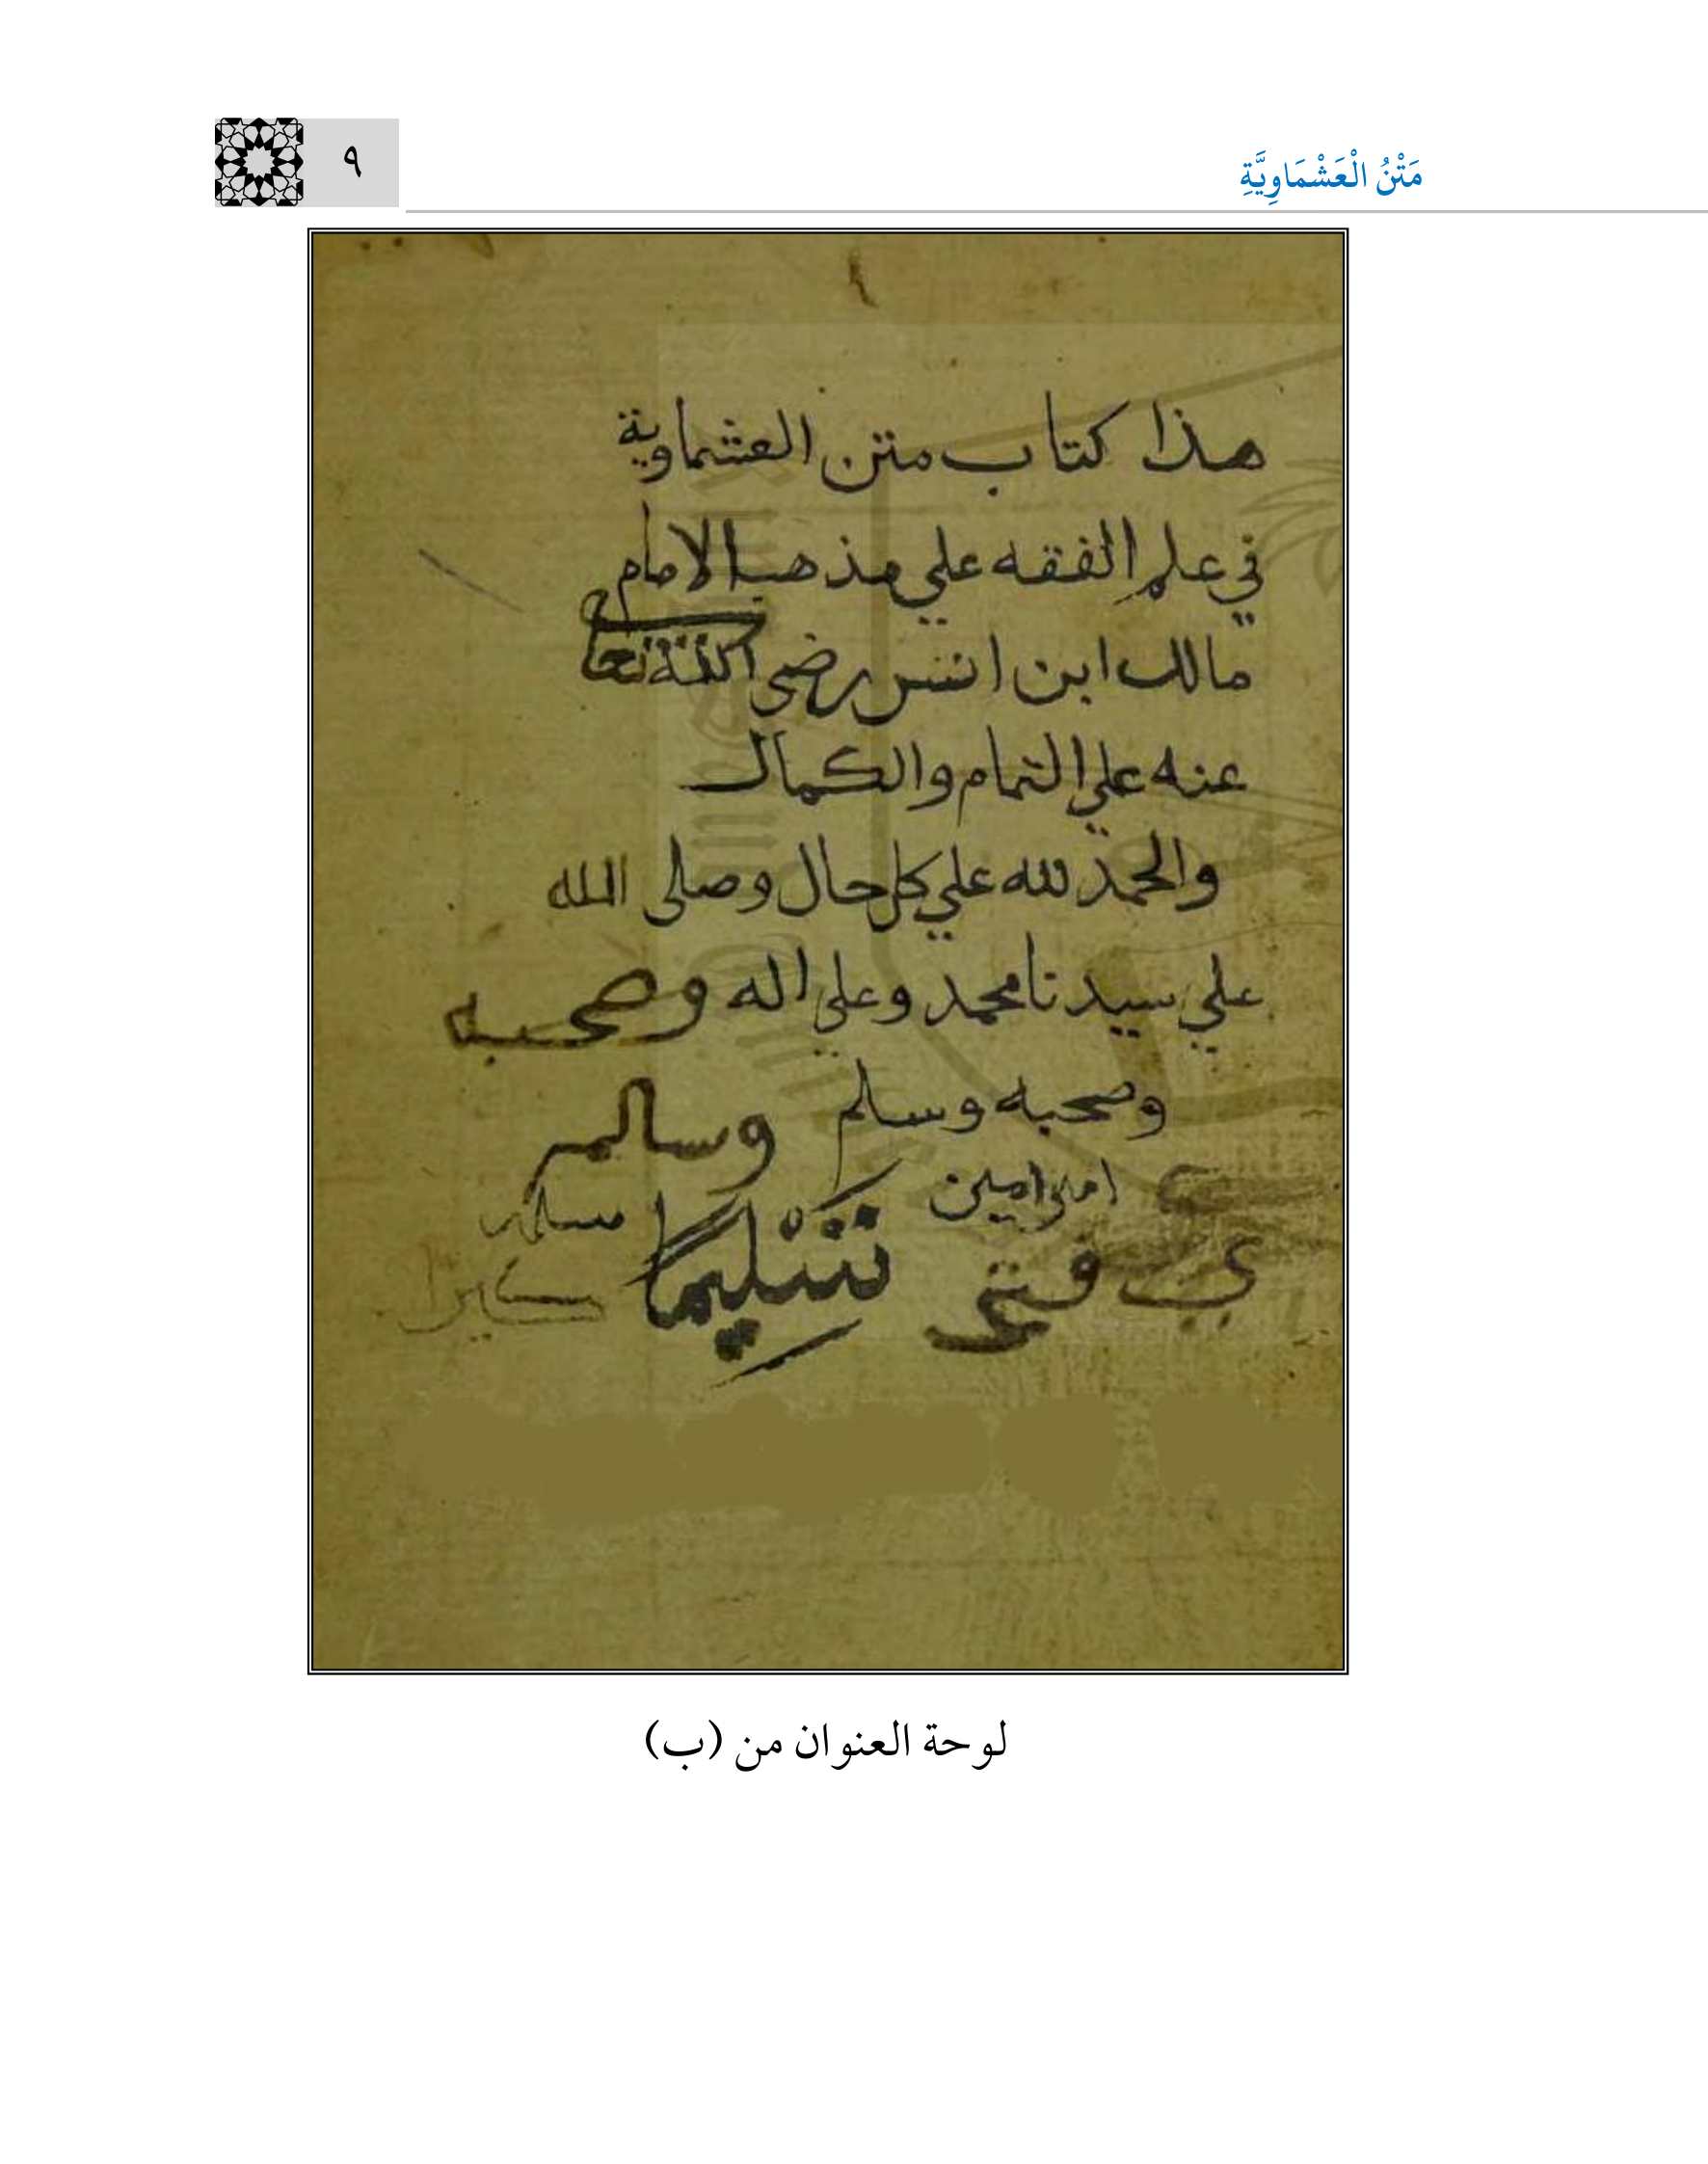 مَتْنُ الْعَشْمَاوِيَّةِ
٩
هذا كتاب متن العشماوية
في علم الفقه علي مذهب الامام
مالك ابن انس رضي الله تعا
عنه علي التمام والكمال
والحمد لله علي كل حال وصلى الله
علي سيدنا محمد وعلي اله وصحبه
وصحبه وسلم وسالم
امين
تَسْلِيمًا
لوحة العنوان من (ب)